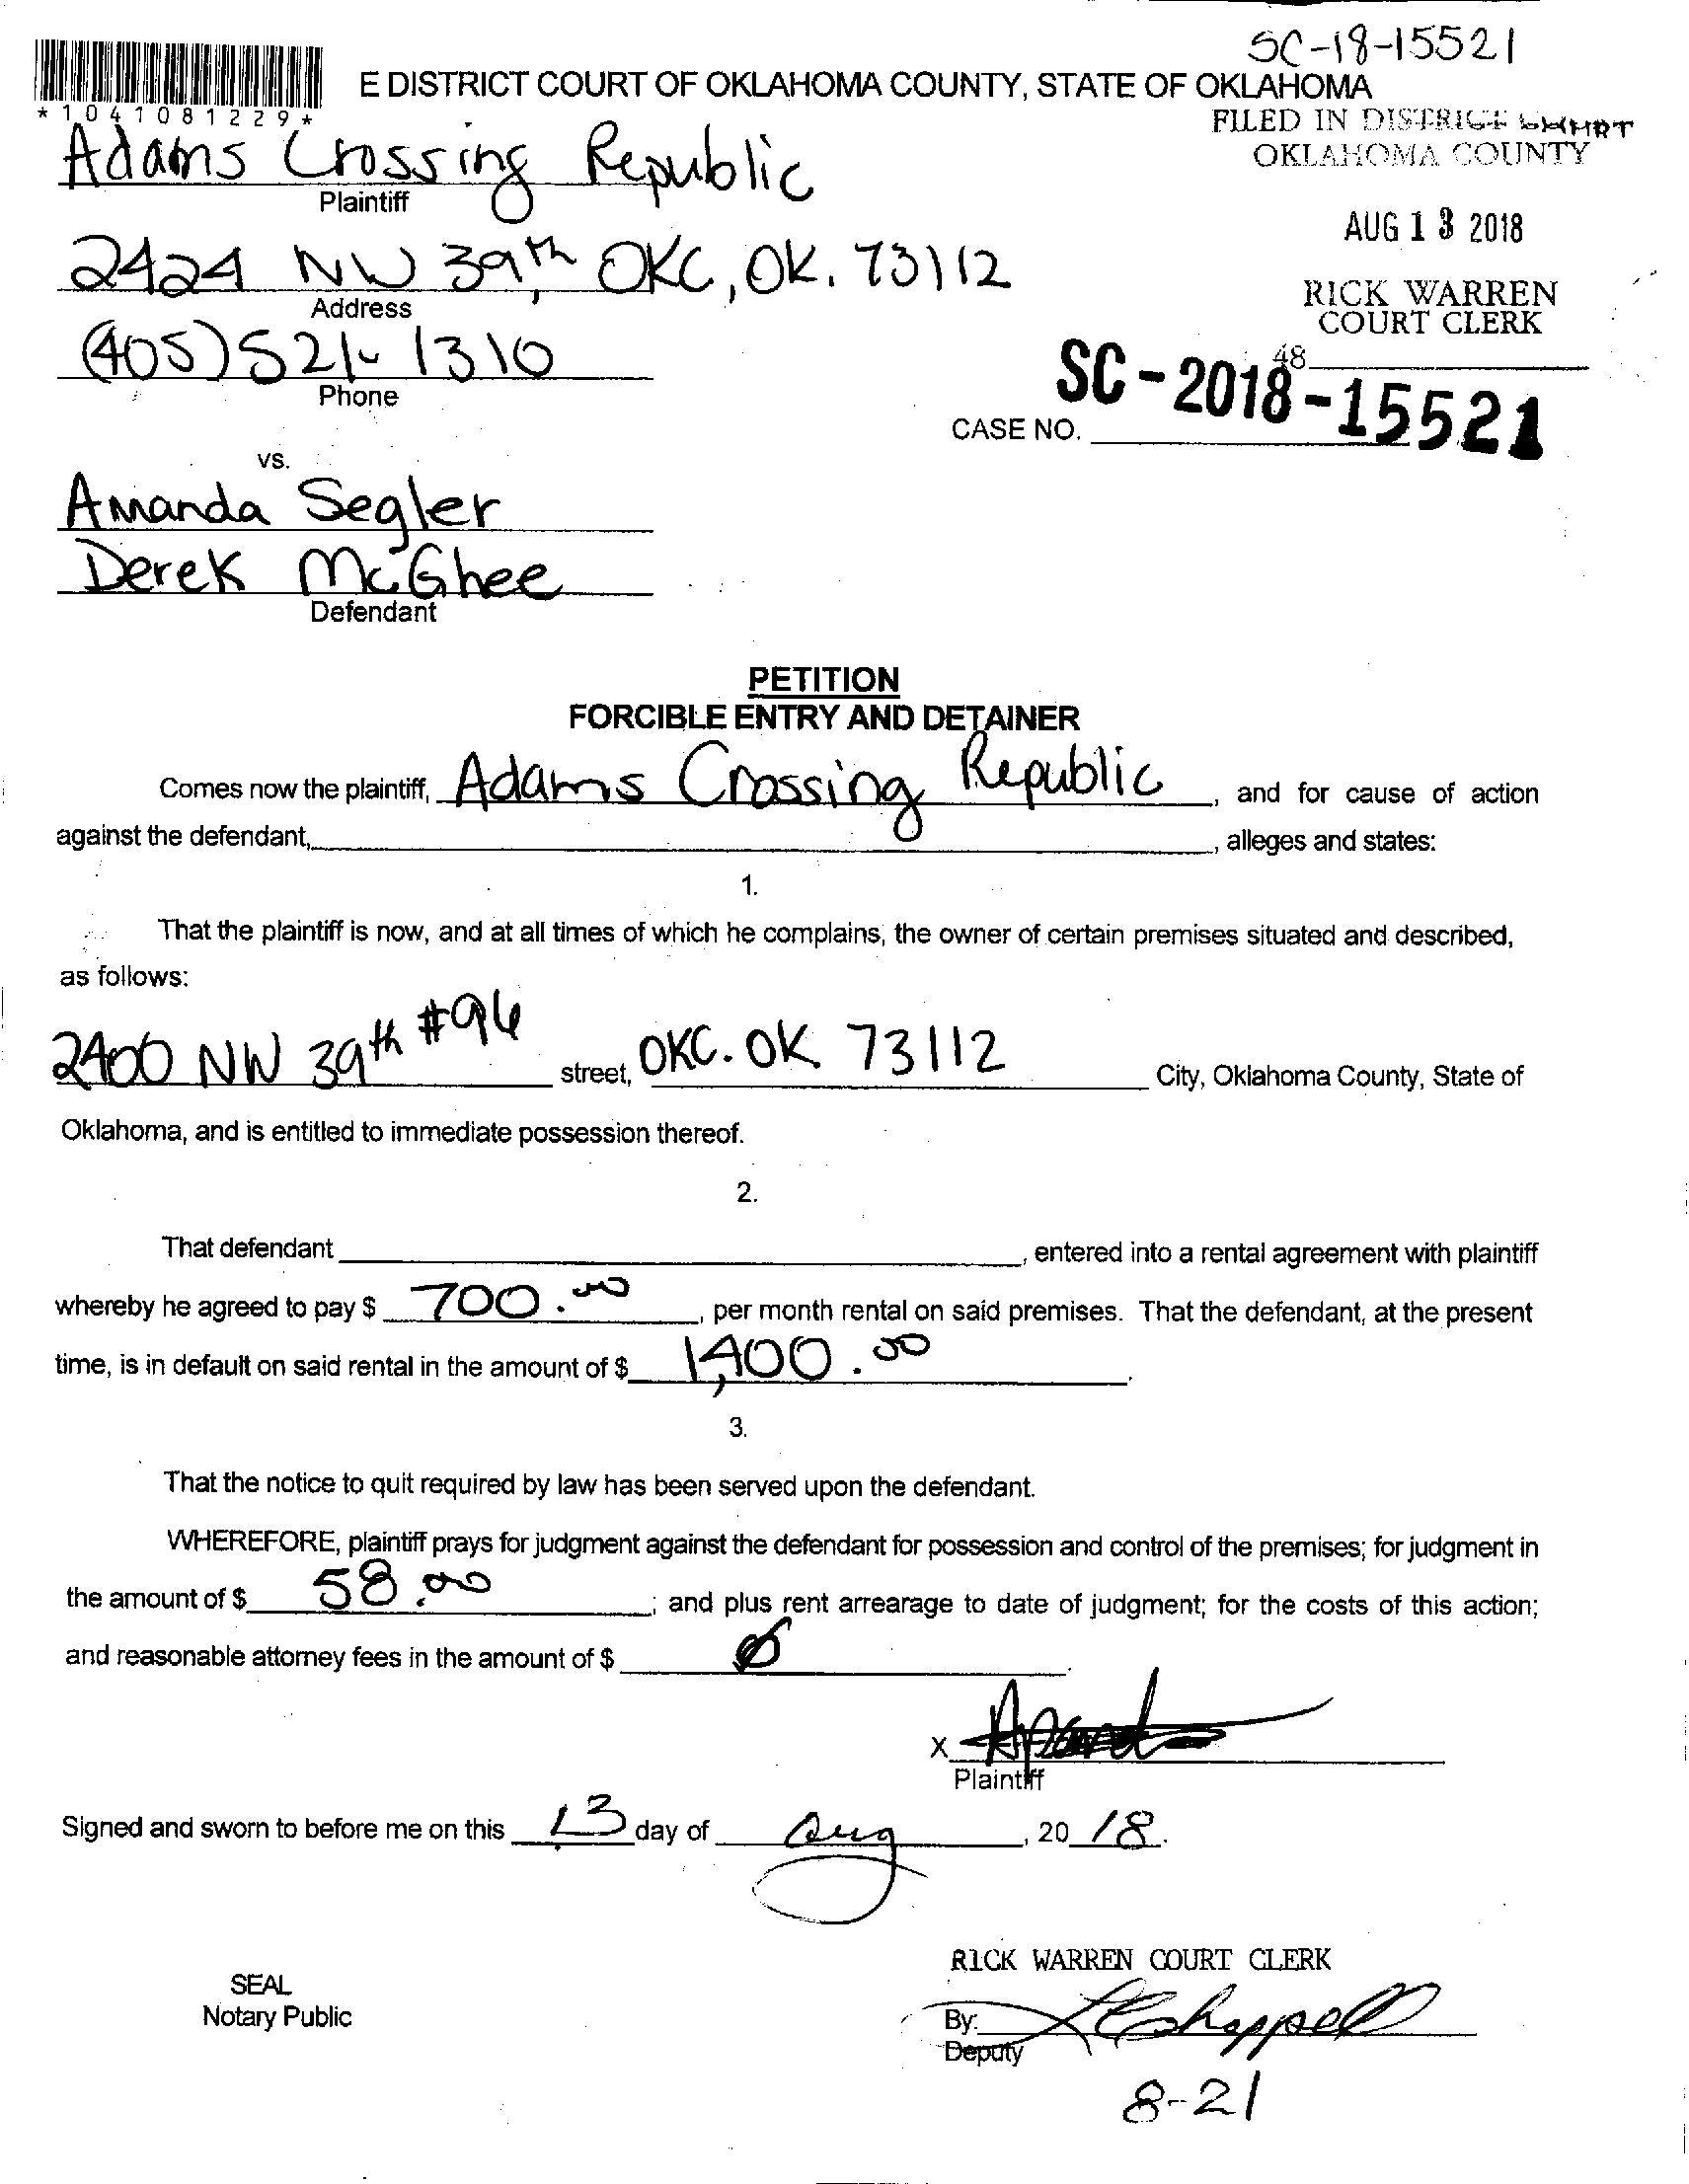 SC-18-15521
E DISTRICT COURT OF OKLAHOMA COUNTY, STATE OF OKLAHOMA
*1041081229*
FILED IN DISTRICT COURT
OKLAHOMA COUNTY
Adams Crossing Republic
Plaintiff
AUG 13 2018
2424 NW 39th, OKC, OK. 73112
Address
RICK WARREN
COURT CLERK
(405) 521-1310
Phone
48
SC-2018-15521
CASE NO.
vs.
Amanda Segler
Derek McGhee
Defendant
PETITION
FORCIBLE ENTRY AND DETAINER
Comes now the plaintiff, Adams Crossing Republic, and for cause of action
against the defendant, , alleges and states:
1.
That the plaintiff is now, and at all times of which he complains, the owner of certain premises situated and described,
as follows:
2400 NW 39th #96 street, OKC. OK 73112 City, Oklahoma County, State of
Oklahoma, and is entitled to immediate possession thereof.
2.
That defendant , entered into a rental agreement with plaintiff
whereby he agreed to pay $ 700.00, per month rental on said premises. That the defendant, at the present
time, is in default on said rental in the amount of $ 1,400.00.
3.
That the notice to quit required by law has been served upon the defendant.
WHEREFORE, plaintiff prays for judgment against the defendant for possession and control of the premises; for judgment in
the amount of $ 58.00; and plus rent arrearage to date of judgment; for the costs of this action;
and reasonable attorney fees in the amount of $ Ø
X
Plaintiff
Signed and sworn to before me on this 13 day of Aug, 20 18.
RICK WARREN COURT CLERK
SEAL
Notary Public
By:
Deputy
8-21